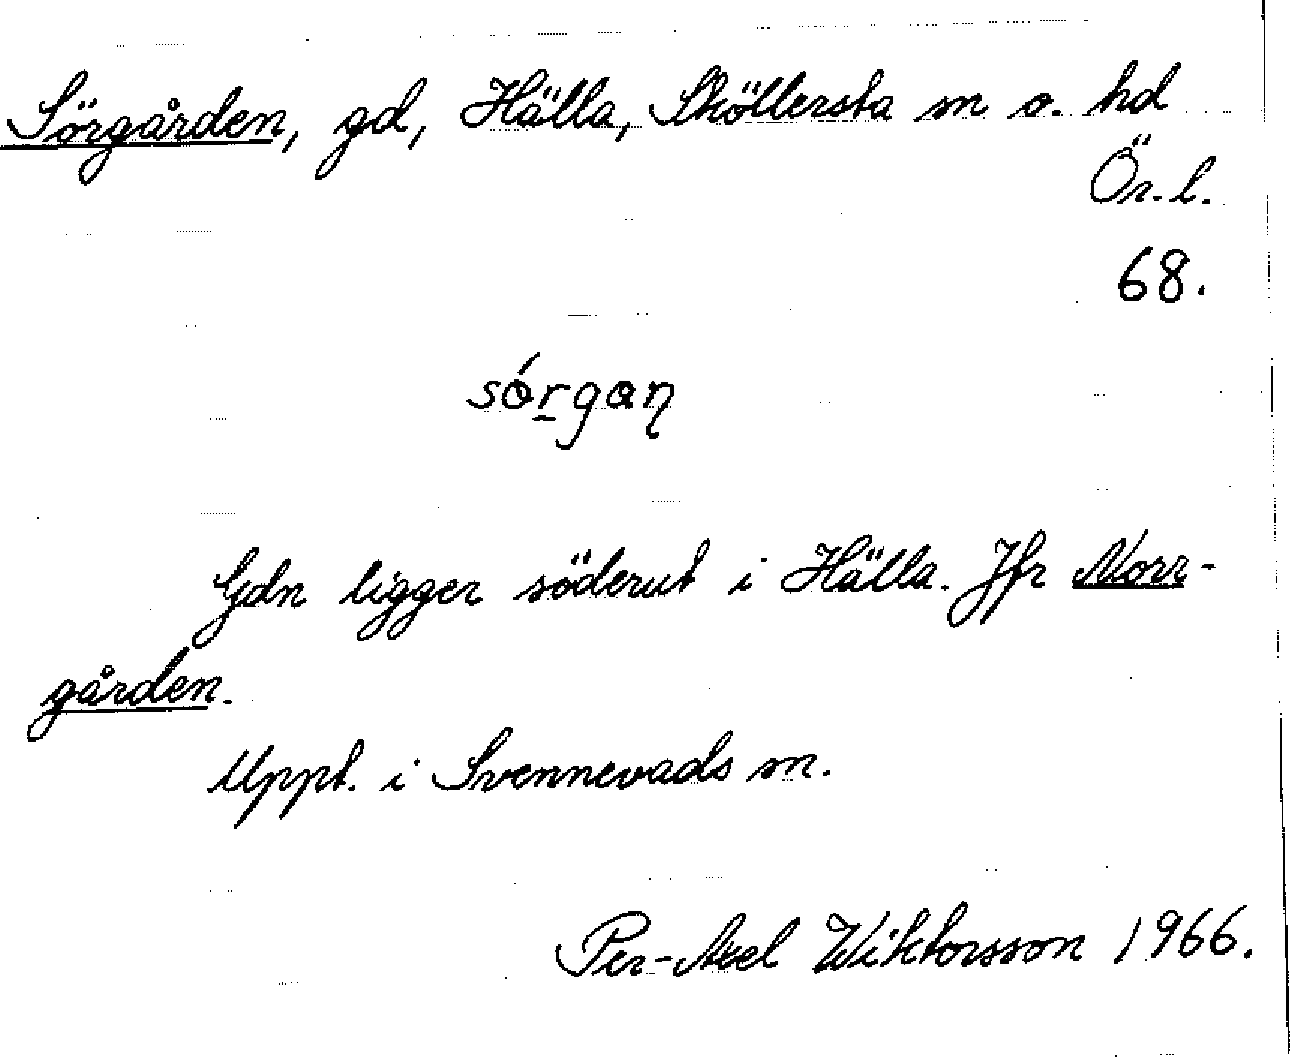 Sörgården, gd, Hälla, Sköllersta sn o. hd
Ör. l.
68.
sǿrgaɳ
Gdn ligger söderut i Hälla. Jfr Norr-
gården.
Uppt. i Svennevads sn.
Per-Axel Wiktorsson 1966.